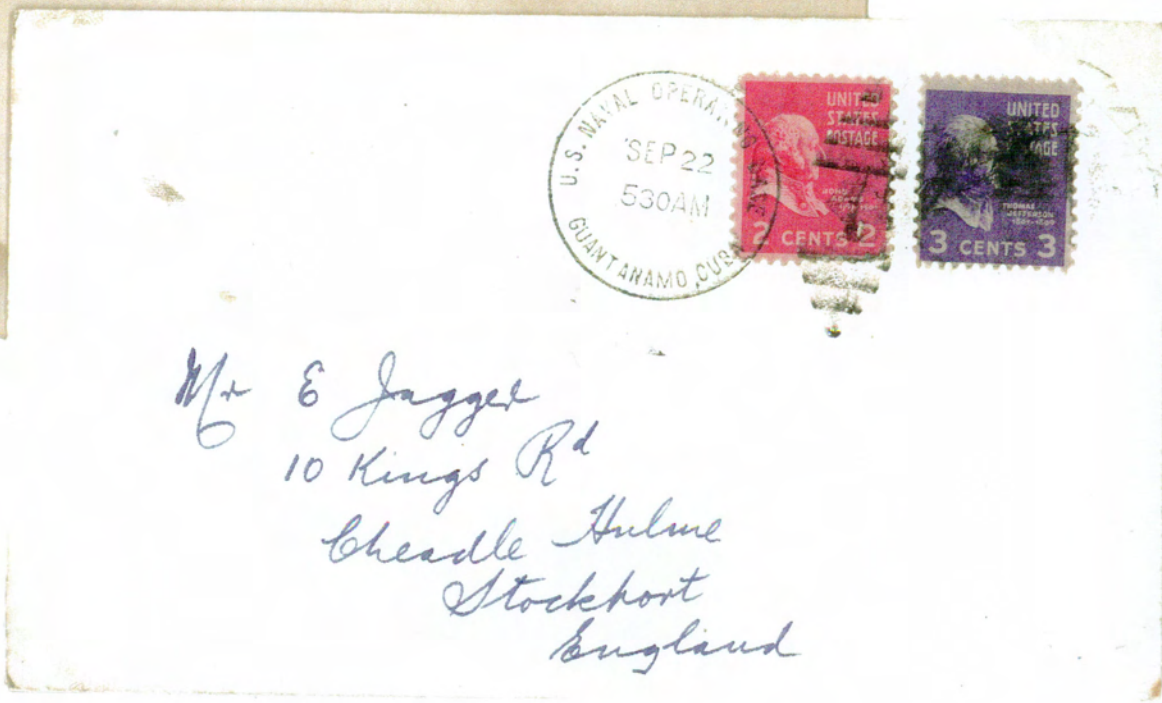 U.S. NAVAL OPERATING BASE
SEP 22
530AM
GUANTANAMO, CUBA
UNITED
STATES
POSTAGE
JOHN
ADAMS
1797-1801
2 CENTS 2
UNITED
STATES
POSTAGE
THOMAS
JEFFERSON
1801-1809
3 CENTS 3
Mr E Jagger
10 Kings Rd
Cheadle Hulme
Stockport
England